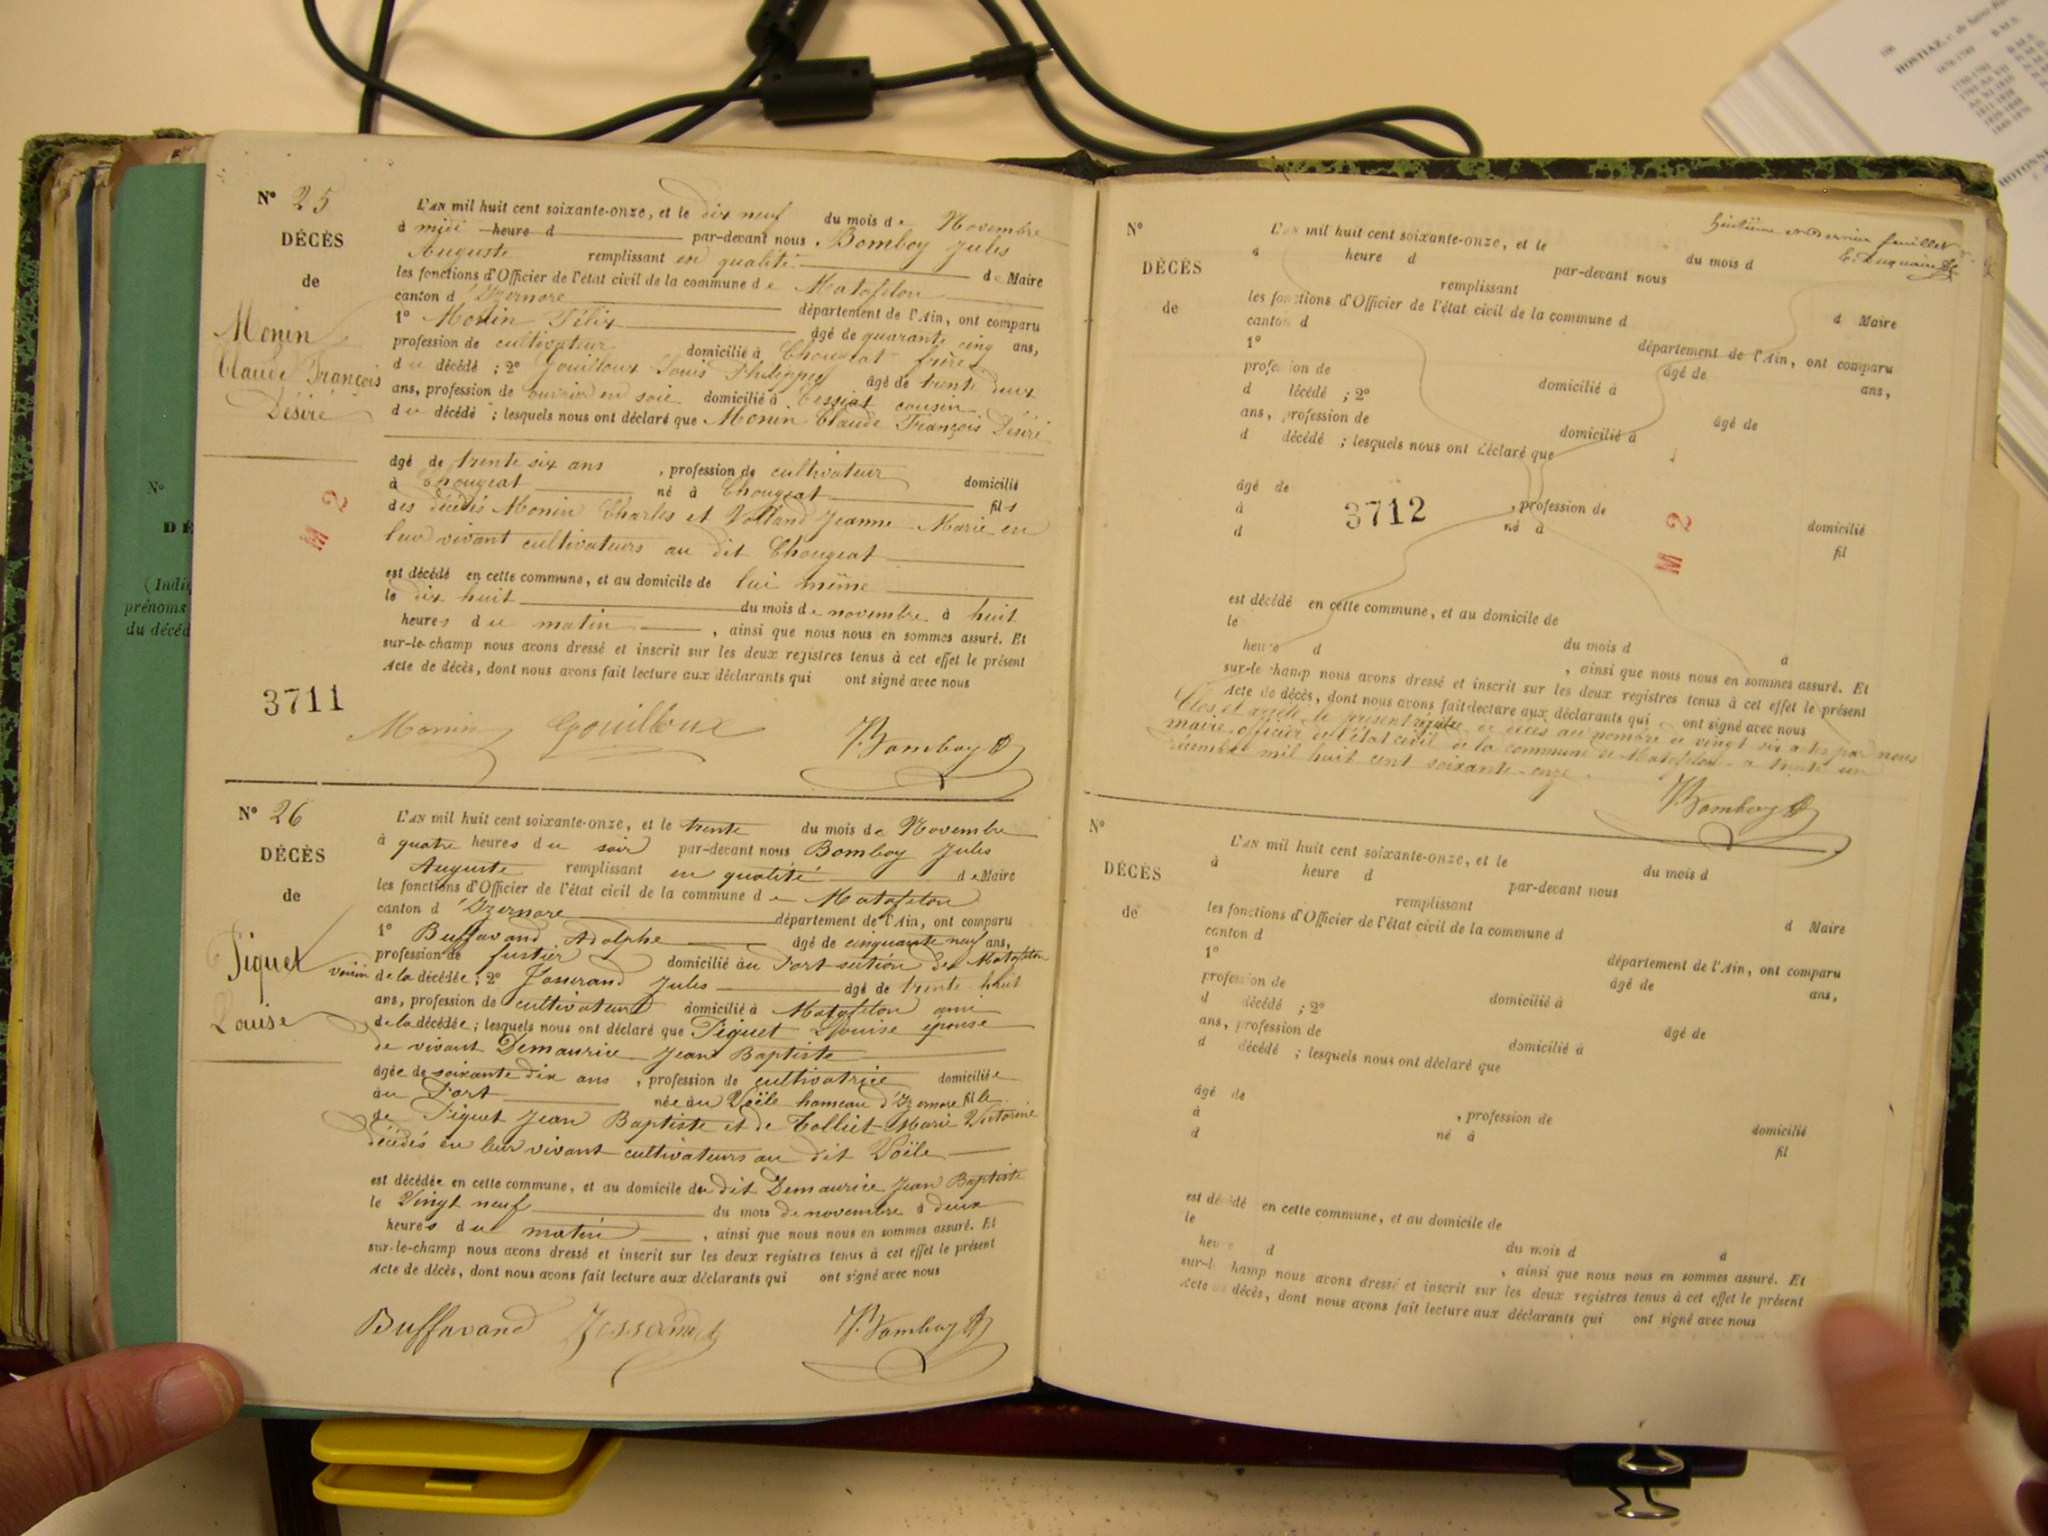 N° 25
DÉCÈS
de
Monin
Claude François
Désiré
L'AN mil huit cent soixante-onze, et le dix neuf du mois de Novembre
à midi heure d par-devant nous Bomboy Jules
Auguste remplissant en qualité de Maire
les fonctions d'Officier de l'état civil de la commune de Matafelon
canton d'Izernore département de l'Ain, ont comparu
1° Monin Félix âgé de quarante cinq ans,
profession de cultivateur domicilié à Chougeat frère
du décédé ; 2° Gouilloux Louis Philippe âgé de trente deux
ans, profession de ouvrier en soie domicilié à Cessiat cousin
du décédé ; lesquels nous ont déclaré que Monin Claude François Désiré
âgé de trente six ans , profession de cultivateur domicilié
à Chougeat né à Chougeat fils
des décédés Monin Charles et Volland Jeanne Marie en
leur vivant cultivateurs au dit Chougeat
est décédé en cette commune, et au domicile de lui même
le dix huit du mois de novembre à huit
heures du matin , ainsi que nous nous en sommes assuré. Et
sur-le-champ nous avons dressé et inscrit sur les deux registres tenus à cet effet le présent
Acte de décès, dont nous avons fait lecture aux déclarants qui ont signé avec nous
M 2
3711
Monin Gouilloux J. Bomboy
N° 26
DÉCÈS
de
Piguet
Louise
L'AN mil huit cent soixante-onze, et le trente du mois de Novembre
à quatre heures du soir par-devant nous Bomboy Jules
Auguste remplissant en qualité de Maire
les fonctions d'Officier de l'état civil de la commune de Matafelon
canton d'Izernore département de l'Ain, ont comparu
1° Buffavand Adolphe âgé de cinquante neuf ans,
profession de fustier domicilié au Port section de Matafelon
voisin de la décédée ; 2° Josserand Jules âgé de trente huit
ans, profession de cultivateur domicilié à Matafelon ami
de la décédée ; lesquels nous ont déclaré que Piguet Louise épouse
de vivant Demaurice Jean Baptiste
âgée de soixante dix ans , profession de cultivatrice domiciliée
au Port née au Voële hameau d'Izernore fille
de Piguet Jean Baptiste et de Tolliet Marie Victorine
décédés en leur vivant cultivateurs au dit Voële
est décédée en cette commune, et au domicile du dit Demaurice Jean Baptiste
le Vingt neuf du mois de novembre à deux
heures du matin , ainsi que nous nous en sommes assuré. Et
sur-le-champ nous avons dressé et inscrit sur les deux registres tenus à cet effet le présent
Acte de décès, dont nous avons fait lecture aux déclarants qui ont signé avec nous
Buffavand Josserand J. Bomboy
huitième et dernier feuillet
N°
DÉCÈS
de
L'AN mil huit cent soixante-onze, et le du mois d
à heure d par-devant nous
remplissant d Maire
les fonctions d'Officier de l'état civil de la commune d
canton d département de l'Ain, ont comparu
1° âgé de ans,
profession de domicilié à
d décédé ; 2° âgé de
ans, profession de domicilié à
d décédé ; lesquels nous ont déclaré que
âgé de , profession de domicilié
à né à fil
d
3712
M 2
est décédé en cette commune, et au domicile de
le du mois d à
heure d , ainsi que nous nous en sommes assuré. Et
sur-le-champ nous avons dressé et inscrit sur les deux registres tenus à cet effet le présent
Acte de décès, dont nous avons fait lecture aux déclarants qui ont signé avec nous
Clos et arrêté le présent registre de décès au nombre de vingt six actes par nous
maire officier de l'état civil de la commune de Matafelon à trente un
décembre mil huit cent soixante-onze.
J. Bomboy
N°
DÉCÈS
de
L'AN mil huit cent soixante-onze, et le du mois d
à heure d par-devant nous
remplissant d Maire
les fonctions d'Officier de l'état civil de la commune d
canton d département de l'Ain, ont comparu
1° âgé de ans,
profession de domicilié à
d décédé ; 2° âgé de
ans, profession de domicilié à
d décédé ; lesquels nous ont déclaré que
âgé de , profession de domicilié
à né à fil
d
est décédé en cette commune, et au domicile de
le du mois d à
heure d , ainsi que nous nous en sommes assuré. Et
sur-le-champ nous avons dressé et inscrit sur les deux registres tenus à cet effet le présent
Acte de décès, dont nous avons fait lecture aux déclarants qui ont signé avec nous
N°
DÉ
(Indi
prénoms
du décéd
HOSTIAZ